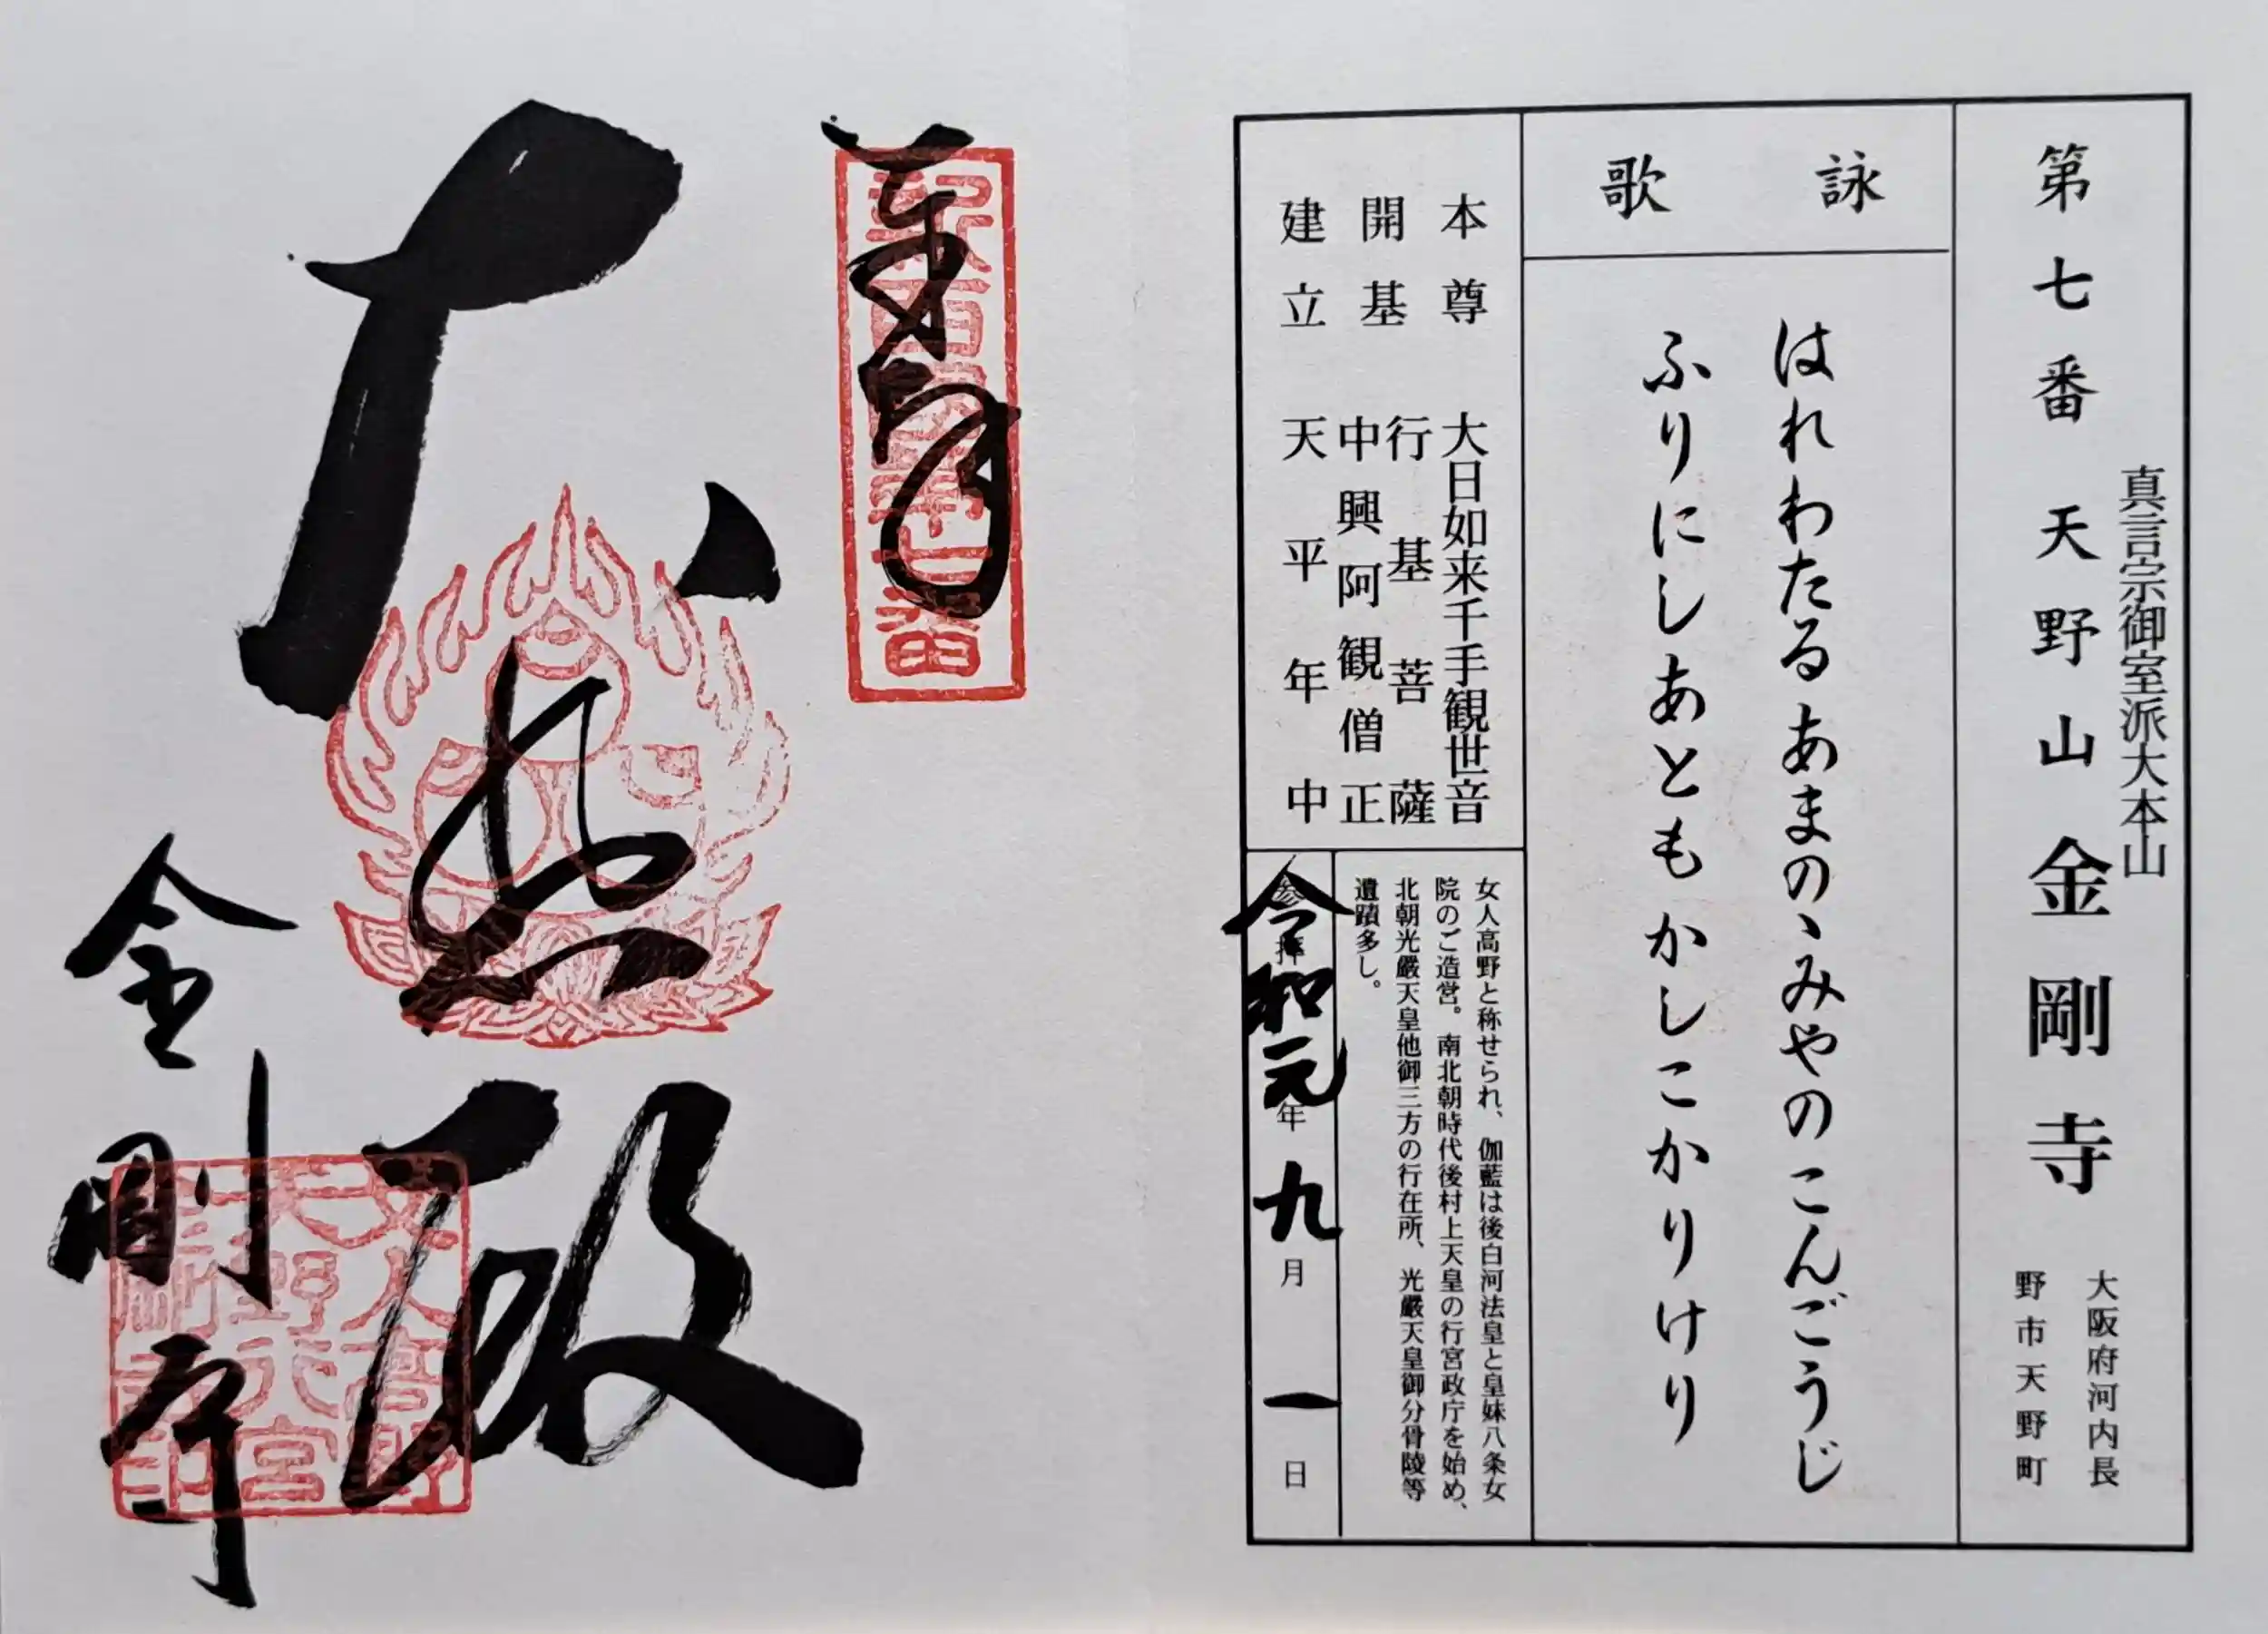 第七番 天野山 金剛寺
真言宗御室派大本山
大阪府河内長
野市天野町
詠歌
はれわたるあまのゝみやのこんごうじ
ふりにしあともかしこかりけり
本尊 大日如来千手観世音
開基 行基菩薩
中興阿観僧正
建立 天平年中
女人高野と称せられ、伽藍は後白河法皇と皇妹八条女
院のご造営。南北朝時代後村上天皇の行宮政庁を始め、
北朝光厳天皇他御三方の行在所、光厳天皇御分骨陵等
遺蹟多し。
参拝 令和元年九月一日
奉拝
新西国第七番
大悲殿
金剛寺
女人高野
天野行宮
金剛寺印